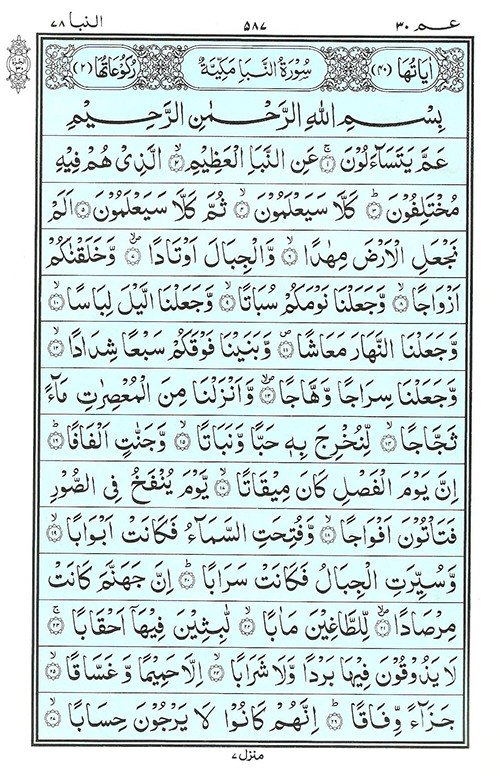 عـم ٣٠ ٥٨٧ النبا ٧٨
اٰیَاتُهَا (٤٠) سُوْرَةُ النَّبَاِ مَكِّیَّةٌ رُكُوْعَاتُهَا (٢)
بِسْمِ اللّٰهِ الرَّحْمٰنِ الرَّحِیْمِ
عَمَّ یَتَسَآءَلُوْنَ ۚ‏﴿١﴾ عَنِ النَّبَاِ الْعَظِیْمِ ۙ‏﴿٢﴾ الَّذِیْ هُمْ فِیْهِ
مُخْتَلِفُوْنَ ؕ‏﴿٣﴾ كَلَّا سَیَعْلَمُوْنَ ۙ‏﴿٤﴾ ثُمَّ كَلَّا سَیَعْلَمُوْنَ ﴿٥﴾ اَلَمْ
نَجْعَلِ الْاَرْضَ مِهٰدًا ۙ‏﴿٦﴾ وَّالْجِبَالَ اَوْتَادًا ۪ۙ‏﴿٧﴾ وَّخَلَقْنٰكُمْ
اَزْوَاجًا ۙ‏﴿٨﴾ وَّجَعَلْنَا نَوْمَكُمْ سُبَاتًا ۙ‏﴿٩﴾ وَّجَعَلْنَا الَّیْلَ لِبَاسًا ۙ‏﴿١٠﴾
وَّجَعَلْنَا النَّهَارَ مَعَاشًا ۪‏﴿١١﴾ وَّبَنَیْنَا فَوْقَكُمْ سَبْعًا شِدَادًا ۙ‏﴿١٢﴾
وَّجَعَلْنَا سِرَاجًا وَّهَّاجًا ۪ۙ‏﴿١٣﴾ وَّاَنْزَلْنَا مِنَ الْمُعْصِرٰتِ مَآءً
ثَجَّاجًا ۙ‏﴿١٤﴾ لِّنُخْرِجَ بِهٖ حَبًّا وَّنَبَاتًا ۙ‏﴿١٥﴾ وَّجَنّٰتٍ اَلْفَافًا ؕ‏﴿١٦﴾
اِنَّ یَوْمَ الْفَصْلِ كَانَ مِیْقَاتًا ۙ‏﴿١٧﴾ یَّوْمَ یُنْفَخُ فِی الصُّوْرِ
فَتَاْتُوْنَ اَفْوَاجًا ۙ‏﴿١٨﴾ وَّفُتِحَتِ السَّمَآءُ فَكَانَتْ اَبْوَابًا ۙ‏﴿١٩﴾
وَّسُیِّرَتِ الْجِبَالُ فَكَانَتْ سَرَابًا ؕ‏﴿٢٠﴾ اِنَّ جَهَنَّمَ كَانَتْ
مِرْصَادًا ۪ۙ‏﴿٢١﴾ لِّلطَّاغِیْنَ مَاٰبًا ۙ‏﴿٢٢﴾ لّٰبِثِیْنَ فِیْهَاۤ اَحْقَابًا ۚ‏﴿٢٣﴾
لَا یَذُوْقُوْنَ فِیْهَا بَرْدًا وَّلَا شَرَابًا ۙ‏﴿٢٤﴾ اِلَّا حَمِیْمًا وَّغَسَّاقًا ۙ‏﴿٢٥﴾
جَزَآءً وِّفَاقًا ؕ‏﴿٢٦﴾ اِنَّهُمْ كَانُوْا لَا یَرْجُوْنَ حِسَابًا ۙ‏﴿٢٧﴾
منزل ٧